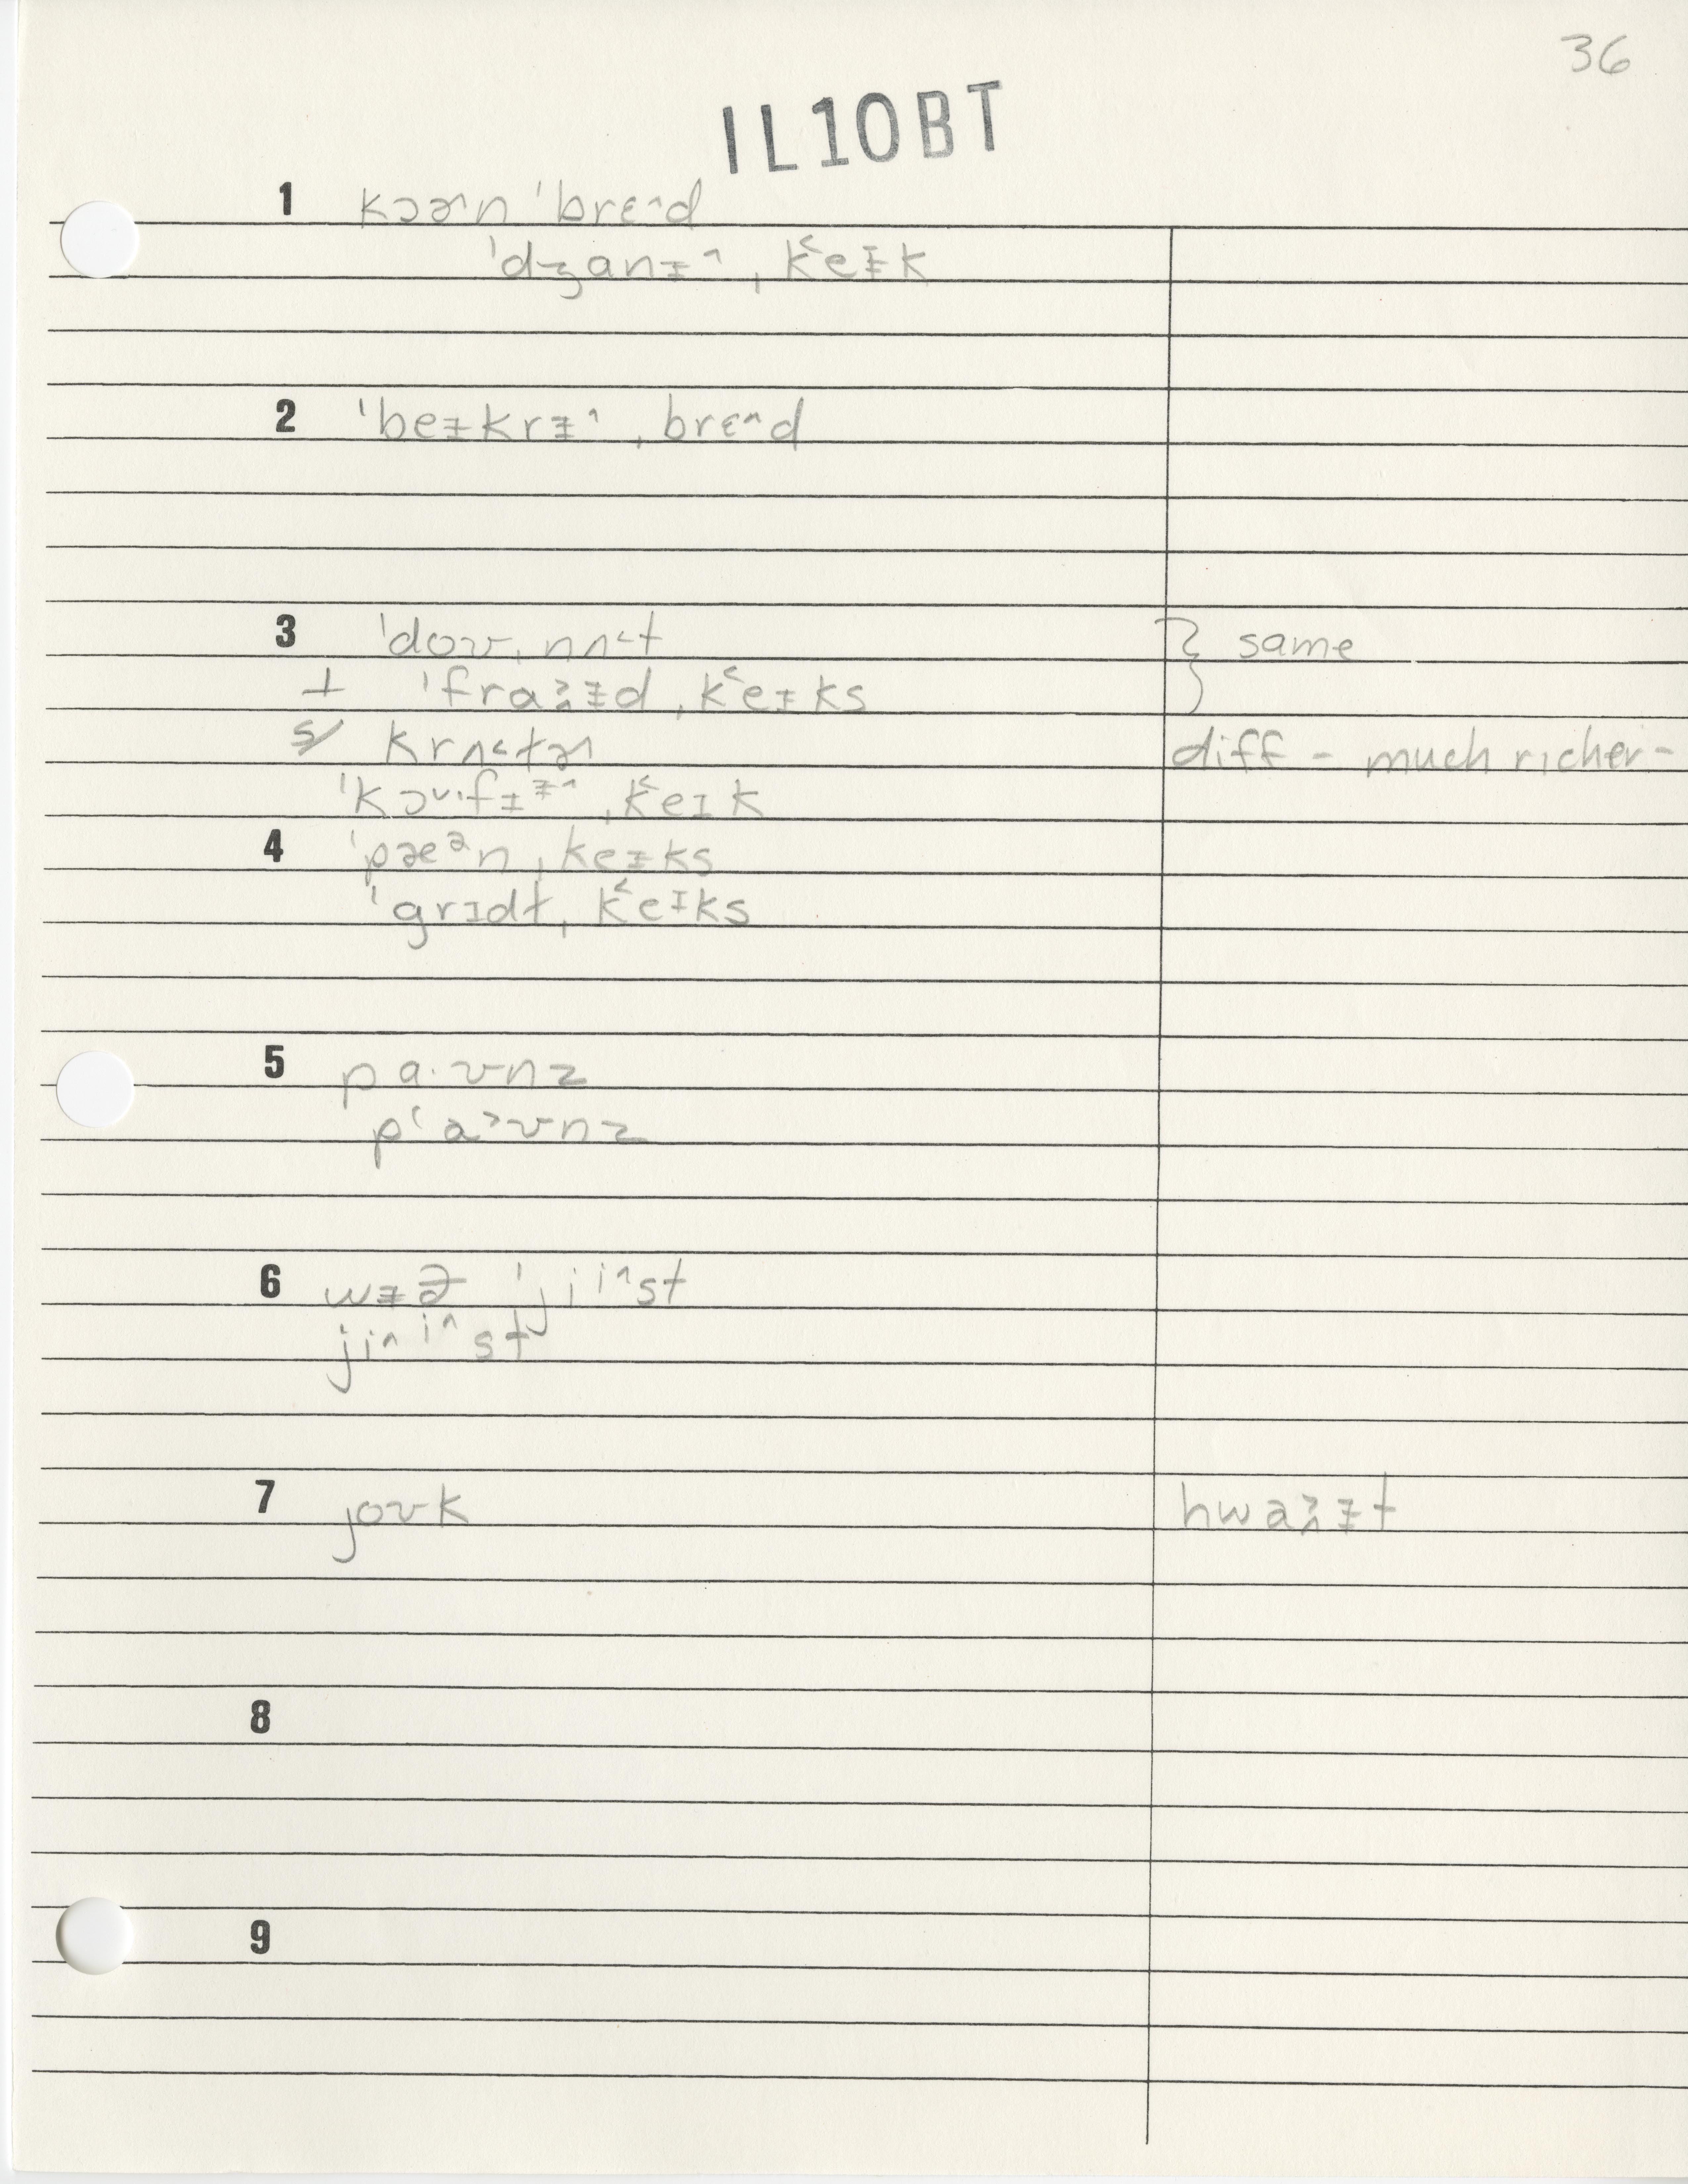 36
IL10BT
1 kɔɚn ˈbrɛ^d
ˈdʒanɪ̵^ ˌk˂eɪ̵k
2 ˈbeɪ̵krɪ̵^ ˌbrɛ^d
3 ˈdoʊˌnʌ˂t } same
⊥ ˈfraɪ̵d ˌk˂eɪ̵ks
s/ krʌ˂tɚ diff - much richer -
ˈkɔfɪ̵^ ˌk˂eɪk
4 ˈpæᵊn ˌkeɪ̵ks
ˈgrɪdɫ ˌk˂eɪks
5 pa·ʊnz
pʻa˃ʊnz
6 wɪ̵ə̵ ˈjii^st
ji^i^st
7 joʊk hwaɪ̵t
8
9